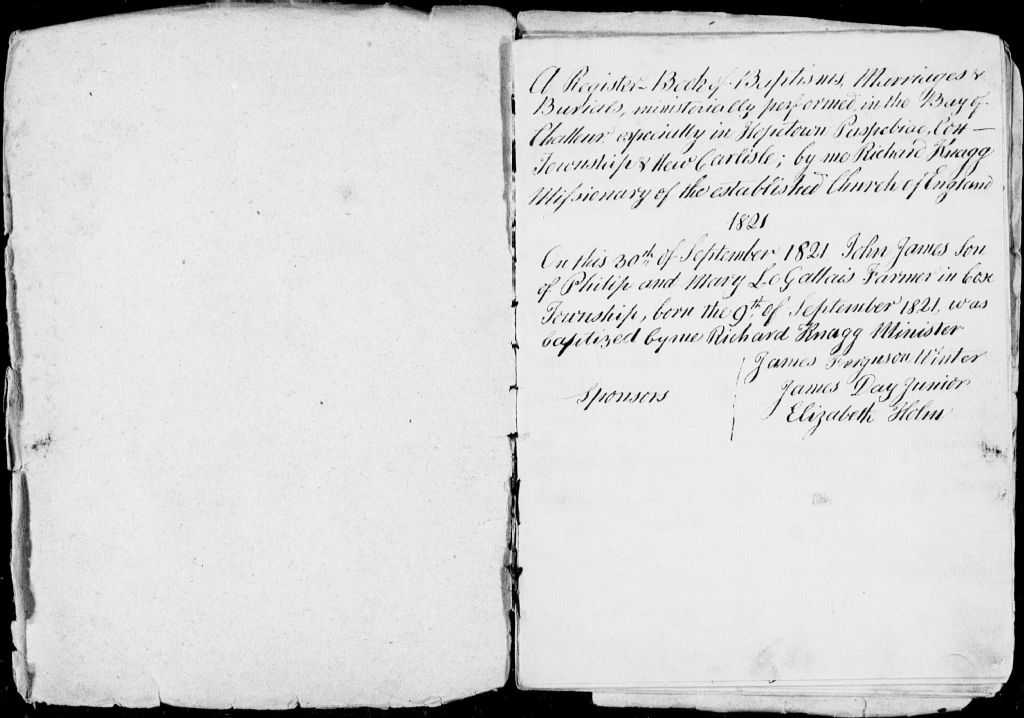 A Register Book of Baptisms, Marriages &
Burials, ministerially performed in the Bay of
Challeur especially in Hopetown Paspebiac, Cox
Township & New Carlisle; by me Richard Knagg
Missionary of the established Church of England
1821
On this 30th of September 1821 John James Son
of Philip and Mary Le Gallais Farmer in Cox
Township, born the 9th of September 1821, was
baptized by me Richard Knagg Minister
James Ferguson Winter
Sponsors James Day Junior
Elizabeth Holm